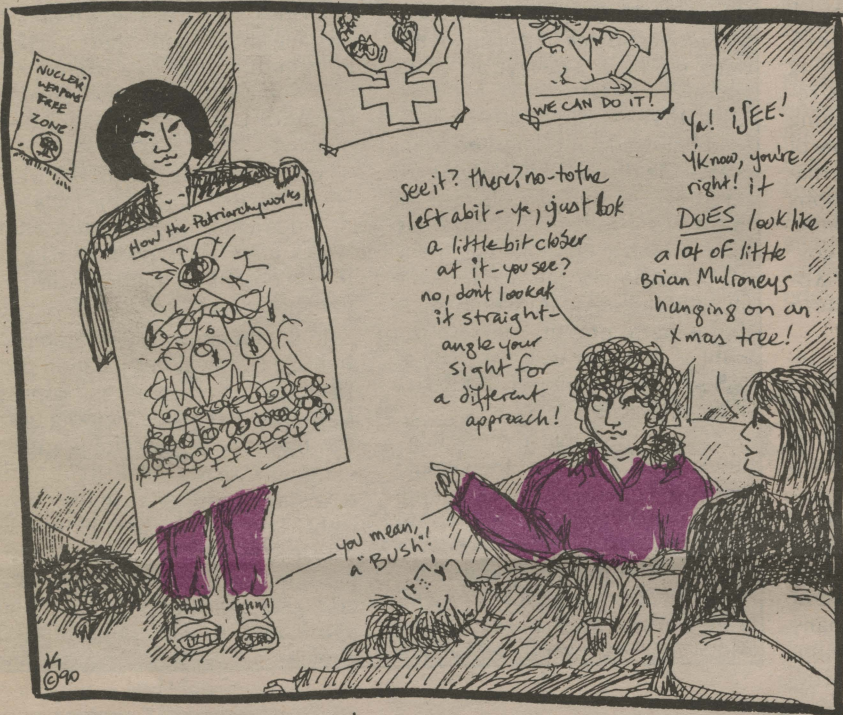 NUCLEAR
WEAPONS
FREE
ZONE
WE CAN DO IT!
How the Patriarchy works
$
$
see it? there? no-to the
left a bit - ya, just look
a little bit closer
at it - you see?
no, don't look at
it straight -
angle your
sight for
a different
approach!
Ya! i SEE!
Y'know, you're
right! it
DOES look like
a lot of little
Brian Mulroneys
hanging on an
Xmas tree!
you mean,
a "BUSH"!
©90